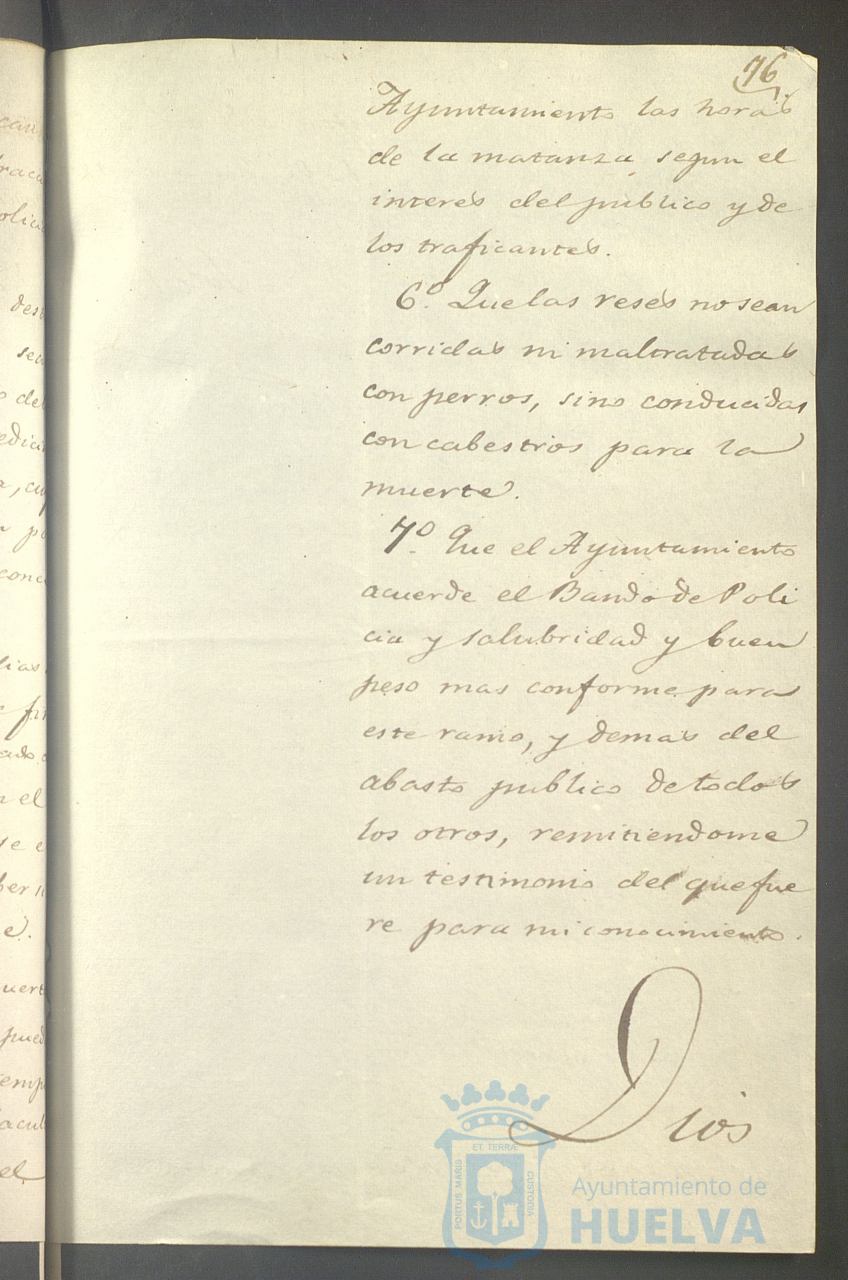 76
Ayuntamiento las horas
de la matanza segun el
interés del publico y de
los traficantes.
6.º Que las reses no sean
corridas ni maltratadas
con perros, sino conducidas
con cabestros para la
muerte.
7.º Que el Ayuntamiento
acuerde el Bando de Poli
cia y salubridad y buen
peso mas conforme para
este ramo, y demas del
abasto publico de todos
los otros, remitiendome
un testimonio del que fue
re para mi conocimiento.
Dios
ET TERRÆ
PORTUS MARIS
CUSTODIA
Ayuntamiento de
HUELVA